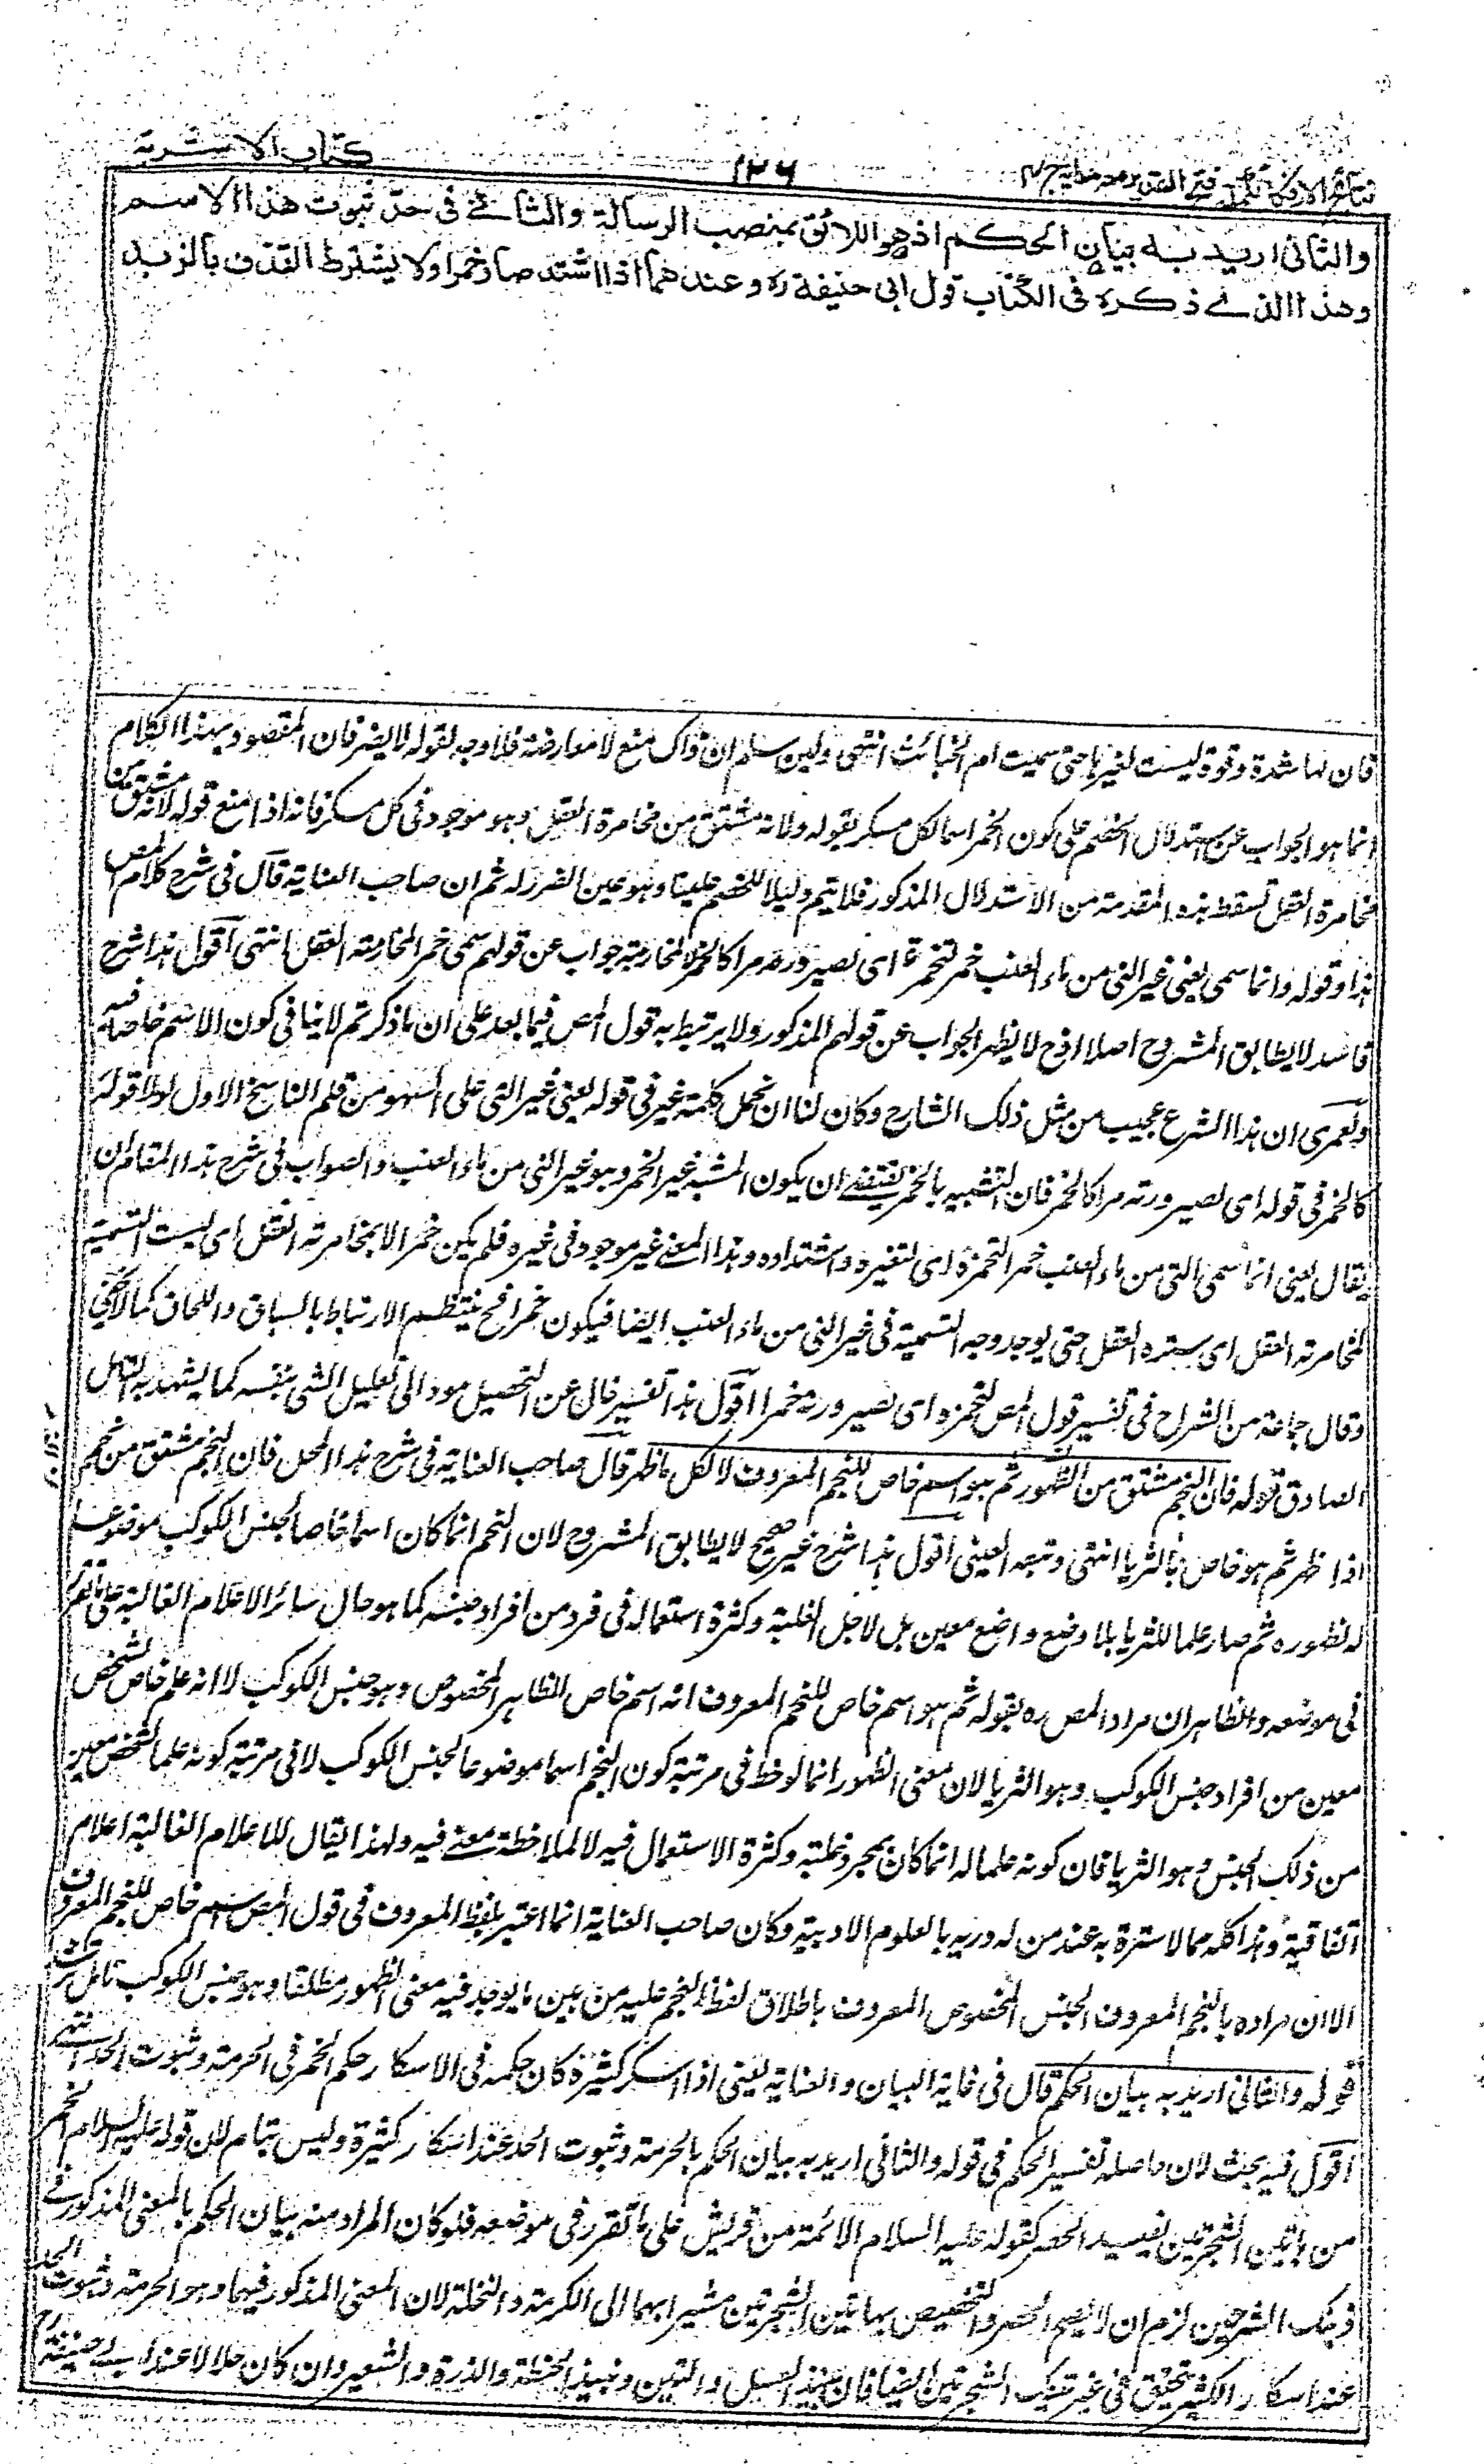 نتائج الافكار تكملة فتح القدير مع هداية ج ٤
١٣٦
كتاب الاشربة
والثانى اريد به بيان الحكم اذ هو اللائق بمنصب الرسالة والثالث فى حد ثبوت هذا الاسم
وهذا الذى ذكره فى الكتاب قول ابى حنيفة ره وعندهما اذا اشتد صار خمرا ولا يشترط القذف بالزبد
فان لها شدة وقوة ليست لغيرها حتى سميت ام الخبائث انتهى ولئن سلم ان ذاك منع لا معارضة فلا وجه لقوله لا يضر فان المقصود بهذا الكلام
انما هو الجواب عن استدلال الخصم على كون الخمر اسما لكل مسكر بقوله ولانه مشتق من مخامرة العقل وهو موجود فى كل مسكر فانه اذا منع قوله لانه مشتق من
مخامرة العقل تسقط هذه المقدمة من الاستدلال المذكور فلا يتم دليلا للخصم علينا وهو عين الضرر له ثم ان صاحب العناية قال فى شرح كلام المص
هذا وقوله وانما سمى يعنى غير النى من ماء العنب خمر لتخمره اى لصيرورته مرا كالخمر لا لمخامرته جواب عن قولهم سمى خمرا لمخامرته العقل انتهى اقول هذا شرح
فاسد لا يطابق المشروح اصلا اذ ح لا يظهر الجواب عن قولهم المذكور ولا يرتبط به قول المص فيما بعد على ان ما ذكرتم لا ينافى كون الاسم خاصا فيه
ولعمرى ان هذا الشرح عجيب من مثل ذلك الشارح وكان لنا ان نحمل كلمة غير فى قوله يعنى غير النى على السهو من قلم الناسخ الاول لولا قوله
كالخمر فى قوله اى لصيرورته مرا كالخمر فان التشبيه بالخمر يقتضى ان يكون المشبه غير الخمر وهو غير النى من ماء العنب والصواب فى شرح هذا المقام ان
يقال يعنى انما سمى النى من ماء العنب خمرا لتخمره اى لتغيره واشتداده وهذا المعنى غير موجود فى غيره فلم يكن خمرا لا بمخامرته العقل اى ليست التسمية
لمخامرته العقل اى ستره العقل حتى يوجد وجه التسمية فى غير النى من ماء العنب ايضا فيكون خمرا فح ينتظم الارتباط بالسباق واللحاق كما لا يخفى
وقال جماعة من الشراح فى تفسير قول المص لتخمره اى لصيرورته خمرا اقول هذا تفسير خال عن التحصيل مود الى تعليل الشى بنفسه كما يشهد به التامل
الصادق قوله فان النجم مشتق من الظهور ثم هو اسم خاص للنجم المعروف لا لكل ما ظهر قال صاحب العناية فى شرح هذا المحل فان النجم مشتق من نجم
اذا ظهر ثم هو خاص بالثريا انتهى وتبعه العينى اقول هذا شرح غير صحيح لا يطابق المشروح لان النجم انما كان اسما خاصا لجنس الكوكب موضوعا
له لظهوره ثم صار علما للثريا بلا وضع واضع معين بل لاجل الغلبة وكثرة استعماله فى فرد من افراد جنسه كما هو حال سائر الاعلام الغالبة على ما تقرر
فى موضعه والظاهر ان مراد المص ره بقوله ثم هو اسم خاص للنجم المعروف انه اسم خاص للظاهر المخصوص وهو جنس الكوكب لا انه علم خاص لشخص
معين من افراد جنس الكوكب وهو الثريا لان معنى الظهور انما لوحظ فى مرتبة كون النجم اسما موضوعا لجنس الكوكب لا فى مرتبة كونه علما لشخص معين
من ذلك الجنس وهو الثريا فان كونه علما له انما كان بمجرد غلبته وكثرة الاستعمال فيه لا لملاحظة معنى فيه ولهذا يقال للاعلام الغالبة اعلام
اتفاقية وهذا كله مما لا سترة به عند من له دربة بالعلوم الادبية وكان صاحب العناية انما اعتبر بلفظ المعروف فى قول المص اسم خاص للنجم المعروف
الا ان مراده بالنجم المعروف الجنس المخصوص المعروف باطلاق لفظ النجم عليه من بين ما يوجد فيه معنى الظهور مطلقا وهو جنس الكوكب تامل ترشد
قوله والثانى اريد به بيان الحكم قال فى غاية البيان والعناية يعنى اذا اسكر كثيره كان حكمه فى الاسكار حكم الخمر فى الحرمة وثبوت الحد انتهى
اقول فيه بحث لان حاصله تفسير الحكم فى قوله والثانى اريد به بيان الحكم بالحرمة وثبوت الحد عند اسكار كثيره وليس بتام لان قوله عليه السلام الخمر
من هاتين الشجرتين يفيد الحصر كقوله عليه السلام الائمة من قريش على ما تقرر فى موضعه فلو كان المراد منه بيان الحكم بالمعنى المذكور فى
ذينك الشرحين لزم ان لا يصح الحصر والتخصيص بهاتين الشجرتين مشيرا بهما الى الكرمة والنخلة لان المعنى المذكور فيهما وهو الحرمة وثبوت الحد
عند اسكار الكثير متحقق فى غير تينك الشجرتين ايضا فان نبيذ العسل والتين ونبيذ الحنطة والذرة والشعير وان كان حلالا عند ابى حنيفة رح